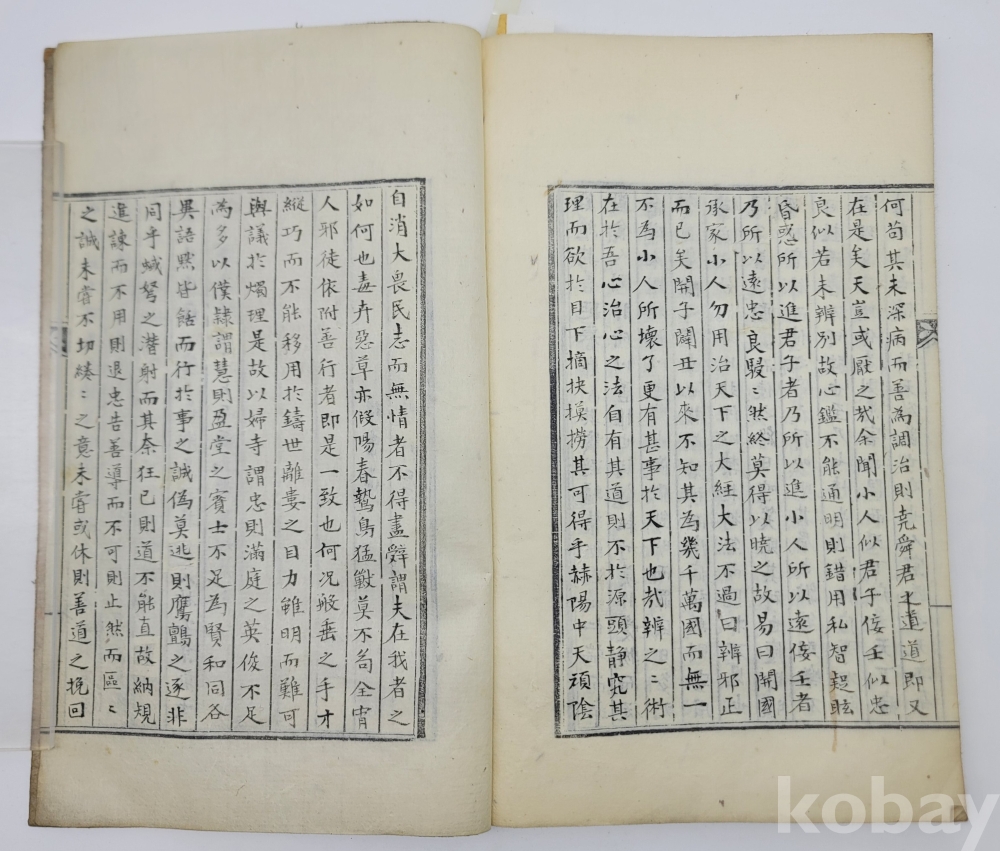 何苟其未深病而善為調治則堯舜君之道道即又
在是矣天豈或厭之哉余聞小人似君子佞壬似忠
良似若未辨別故心鑑不能通明則錯用私智起眩
昏惑所以進君子者乃所以進小人所以遠佞壬者
乃所以遠忠良駸〻然終莫得以曉之故易曰開國
承家小人勿用治天下之大經大法不過曰辨邪正
而已矣開子闢丑以來不知其為幾千萬國而無一
不為小人所壞了更有甚事於天下也哉辨之〻術
在於吾心治心之法自有其道則不於源頭靜究其
理而欲於目下摘抉摸撈其可得乎赫陽中天頑陰
自消大畏民志而無情者不得盡辭謂夫在我者之
如何也毒卉惡草亦假陽春鷙鳥猛獸莫不苟全宵
人邪徒依附善行者即是一致也何況般垂之手才
縱巧而不能移用於鑄世離婁之目力雖明而難可
與議於燭理是故以婦寺謂忠則滿庭之英俊不足
為多以僕隸謂慧則盈堂之賓士不足為賢和同各
異語默皆餂而行於事之誠偽莫逃則鷹鸇之逐非
同乎蜮弩之潛射而其奈狂已則道不能直故納規
進諫而不用則退忠告善導而不可則止然而區〻
之誠未嘗不切縷〻之意未嘗或休則善道之挽回
kobay